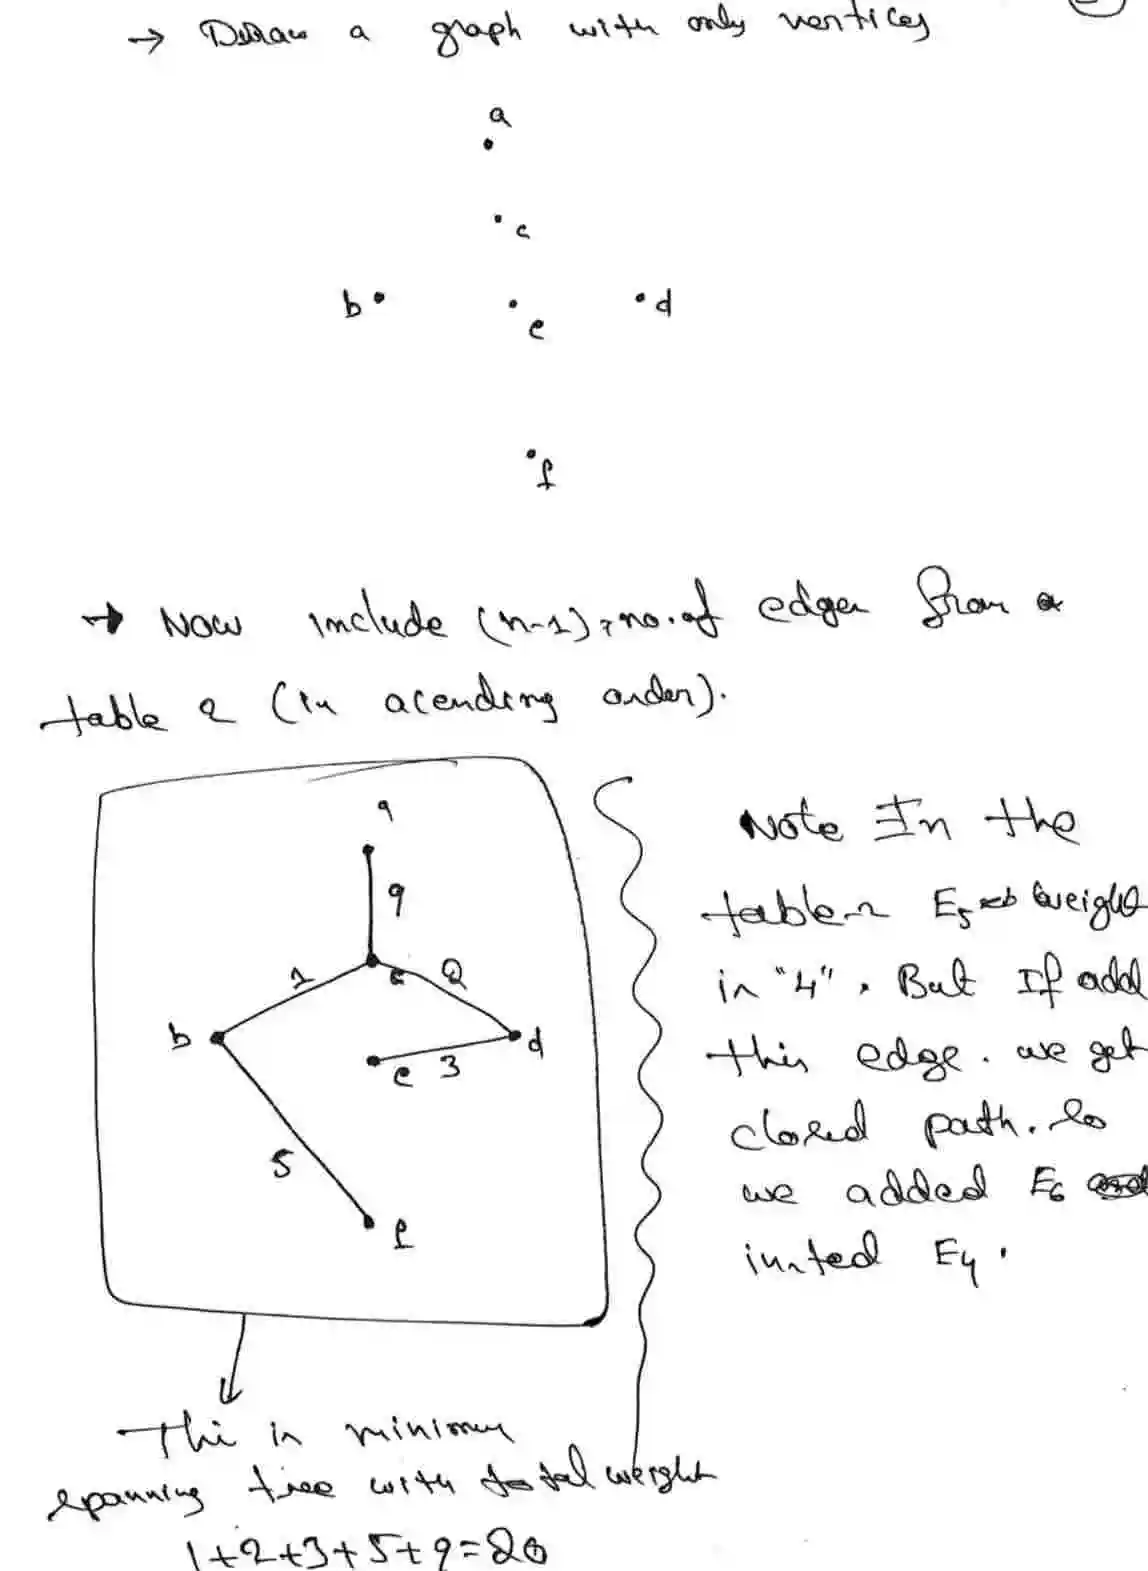 → Draw a graph with only vertices
a
c
b
e
d
f
→ Now include (n-1), no. of edges from
table 2 (in acending order).
a
9
1
c
2
b
d
e
3
5
f
Note In the
table-2 E5 weight
in "4". But If add
this edge. we get
closed path. So
we added E6
insted E4.
Thi is minimum
spanning tree with total weight
1+2+3+5+9=20